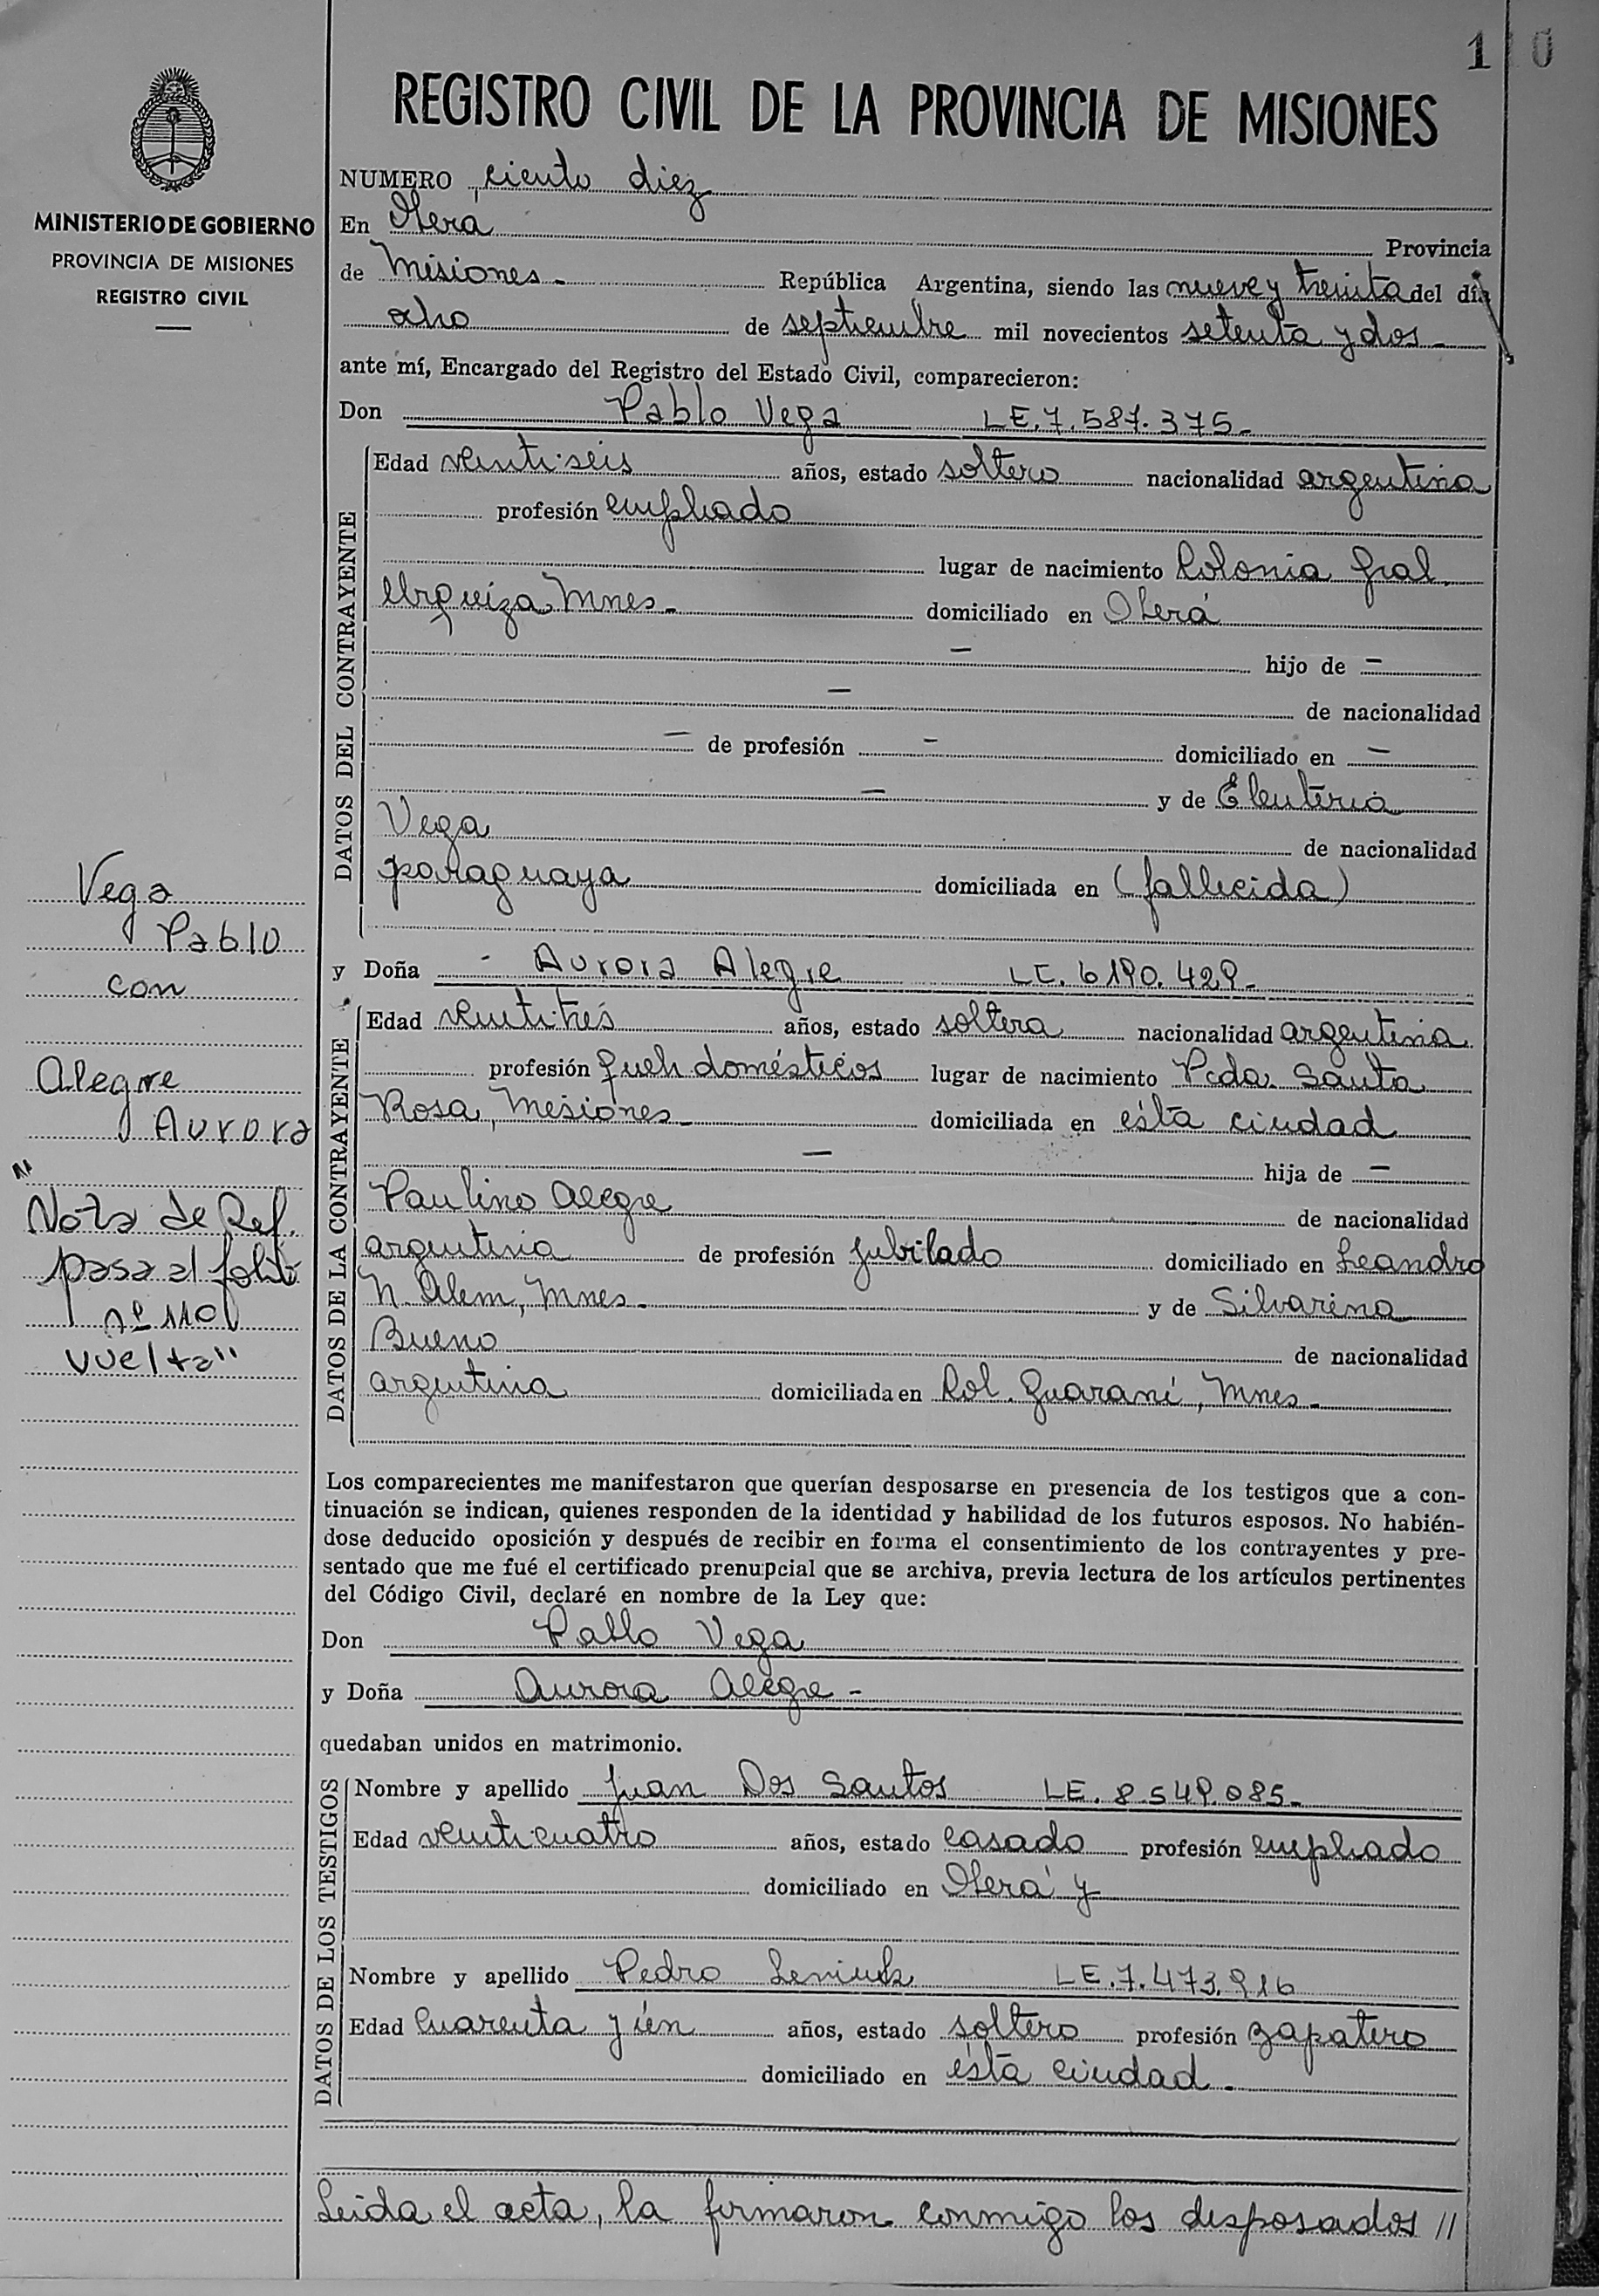 110
REGISTRO CIVIL DE LA PROVINCIA DE MISIONES
MINISTERIO DE GOBIERNO
PROVINCIA DE MISIONES
REGISTRO CIVIL
NUMERO ciento diez
En Oberá Provincia
de Misiones - República Argentina, siendo las nueve y treinta del día
ocho de septiembre mil novecientos setenta y dos -
ante mí, Encargado del Registro del Estado Civil, comparecieron:
Don Pablo Vega LE. 7.587.375 -
DATOS DEL CONTRAYENTE
Edad veintiseis años, estado soltero nacionalidad argentina
profesión empleado
lugar de nacimiento Colonia Gral.
Urquiza, Mnes - domiciliado en Oberá
— hijo de —
— de nacionalidad
— de profesión — domiciliado en —
— y de Eleuteria
Vega de nacionalidad
paraguaya domiciliada en (fallecida)
y Doña - Aurora Alegre LC. 6190.429 -
DATOS DE LA CONTRAYENTE
Edad veintitrés años, estado soltera nacionalidad argentina
profesión queh domésticos lugar de nacimiento Pcda. Santa
Rosa, Misiones - domiciliada en ésta ciudad
— hija de —
Paulino Alegre de nacionalidad
argentina de profesión jubilado domiciliado en Leandro
N. Alem, Mnes - y de Silvarina
Bueno de nacionalidad
argentina domiciliada en Col. Guaraní, Mnes -
Los comparecientes me manifestaron que querían desposarse en presencia de los testigos que a con-
tinuación se indican, quienes responden de la identidad y habilidad de los futuros esposos. No habién-
dose deducido oposición y después de recibir en forma el consentimiento de los contrayentes y pre-
sentado que me fué el certificado prenupcial que se archiva, previa lectura de los artículos pertinentes
del Código Civil, declaré en nombre de la Ley que:
Don Pablo Vega
y Doña Aurora Alegre -
quedaban unidos en matrimonio.
DATOS DE LOS TESTIGOS
Nombre y apellido Juan Dos Santos LE. 8.549.085 -
Edad veinticuatro años, estado casado profesión empleado
domiciliado en Oberá y
Nombre y apellido Pedro LE. 7.473.916
Edad Cuarenta y ún años, estado soltero profesión zapatero
domiciliado en ésta ciudad -
Leida el acta, la firmaron conmigo los desposados //
Vega
Pablo
con
Alegre
Aurora
"Nota de Ref.
pasa al folio
nº 110
vuelta"